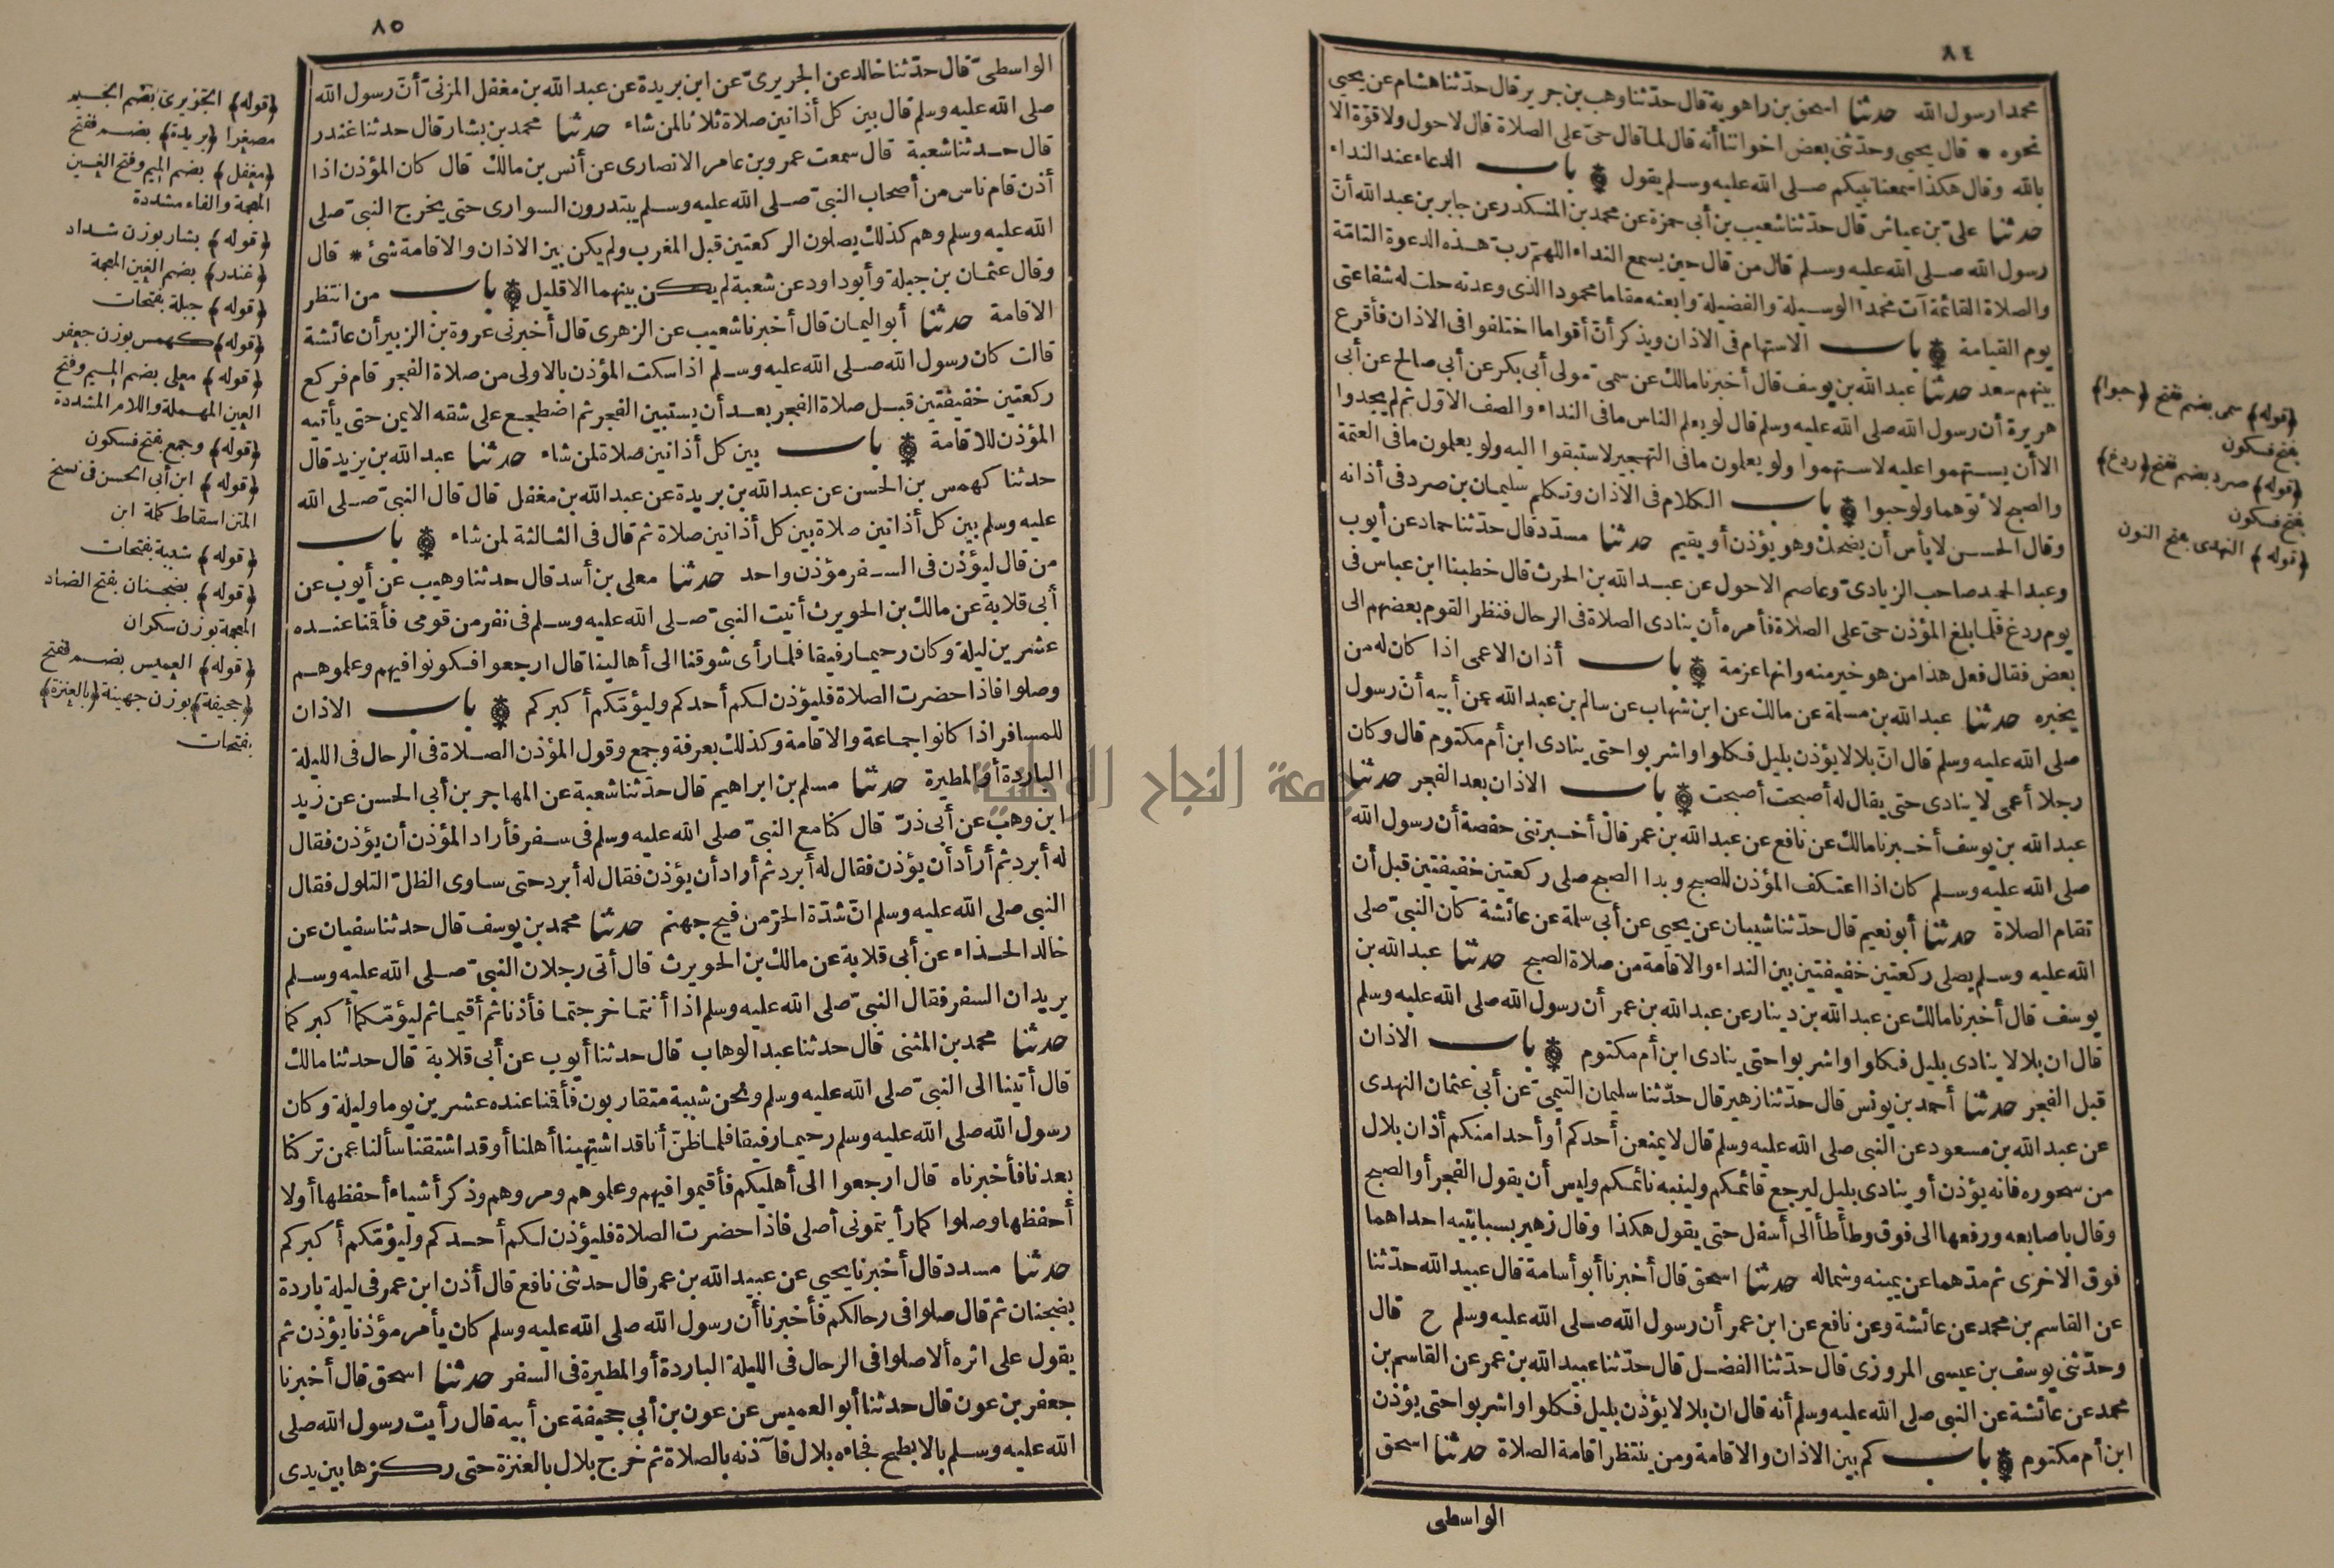 ٨٤
محمدا رسول الله حدثنا اسحق بن راهوية قال حدّثنا وهب بن جرير قال حدّثنا هشام عن يحيى
نحوه * قال يحيى وحدّثنى بعض اخواننا أنه قال لما قال حىّ على الصلاة قال لا حول ولا قوّة الا
بالله وقال هكذا سمعنا نبيكم صلى الله عليه وسلم يقول باب الدعاء عند النداء
حدثنا علىّ بن عياش قال حدّثنا شعيب بن أبى حمزة عن محمد بن المنكدر عن جابر بن عبد الله أنّ
رسول الله صلى الله عليه وسلم قال من قال حين يسمع النداء اللهمّ ربّ هذه الدعوة التامّة
والصلاة القائمة آت محمدا الوسيلة والفضيلة وابعثه مقاما محمودا الذى وعدته حلت له شفاعتى
يوم القيامة باب الاستهام فى الاذان ويذكر أنّ أقواما اختلفوا فى الاذان فأقرع
بينهم سعد حدثنا عبد الله بن يوسف قال أخبرنا مالك عن سمىّ مولى أبى بكر عن أبى صالح عن أبى
هريرة أن رسول الله صلى الله عليه وسلم قال لو يعلم الناس ما فى النداء والصف الاوّل ثم لم يجدوا
الا أن يستهموا عليه لاستهموا ولو يعلمون ما فى التهجير لاستبقوا اليه ولو يعلمون ما فى العتمة
والصبح لأتوهما ولو حبوا باب الكلام فى الاذان وتكلم سليمان بن صرد فى أذانه
وقال الحسن لا بأس أن يضحك وهو يؤذن أو يقيم حدثنا مسدد قال حدّثنا حماد عن أيوب
وعبد الحمد صاحب الزيادىّ وعاصم الاحول عن عبد الله بن الحرث قال خطبنا ابن عباس فى
يوم ردغ فلما بلغ المؤذن حىّ على الصلاة فأمره أن ينادى الصلاة فى الرحال فنظر القوم بعضهم الى
بعض فقال فعل هذا من هو خير منه وانها عزمة باب أذان الاعمى اذا كان له من
يخبره حدثنا عبد الله بن مسلمة عن مالك عن ابن شهاب عن سالم بن عبد الله عن أبيه أنّ رسول
صلى الله عليه وسلم قال انّ بلالا يؤذن بليل فكلوا واشربوا حتى ينادى ابن أم مكتوم قال وكان
رجلا أعمى لا ينادى حتى يقال له أصبحت أصبحت باب الاذان بعد الفجر حدثنا
عبد الله بن يوسف أخبرنا مالك عن نافع عن عبد الله بن عمر قال أخبرتنى حفصة أن رسول الله
صلى الله عليه وسلم كان اذا اعتكف المؤذن للصبح وبدا الصبح صلى ركعتين خفيفتين قبل أن
تقام الصلاة حدثنا أبو نعيم قال حدّثنا شيبان عن يحيى عن أبى سلمة عن عائشة كان النبىّ صلى
الله عليه وسلم يصلى ركعتين خفيفتين بين النداء والاقامة من صلاة الصبح حدثنا عبد الله بن
يوسف قال أخبرنا مالك عن عبد الله بن دينار عن عبد الله بن عمر أن رسول الله صلى الله عليه وسلم
قال ان بلالا ينادى بليل فكلوا واشربوا حتى ينادى ابن أم مكتوم باب الاذان
قبل الفجر حدثنا أحمد بن يونس قال حدّثنا زهير قال حدّثنا سليمان التيمىّ عن أبى عثمان النهدى
عن عبد الله بن مسعود عن النبى صلى الله عليه وسلم قال لا يمنعن أحدكم أو أحدا منكم أذان بلال
من سحوره فانه يؤذن أو ينادى بليل ليرجع قائمكم ولينبه نائمكم وليس أن يقول الفجر أو الصبح
وقال باصابعه ورفعها الى فوق وطأطأ الى أسفل حتى يقول هكذا وقال زهير بسبابتيه احداهما
فوق الاخرى ثم مدّهما عن يمينه وشماله حدثنا اسحق قال أخبرنا أبو أسامة قال عبيد الله حدّثنا
عن القاسم بن محمد عن عائشة وعن نافع عن ابن عمر أن رسول الله صلى الله عليه وسلم ح قال
وحدّثنى يوسف بن عيسى المروزى قال حدّثنا الفضل قال حدّثنا عبيد الله بن عمر عن القاسم بن
محمد عن عائشة عن النبى صلى الله عليه وسلم أنه قال ان بلالا يؤذن بليل فكلوا واشربوا حتى يؤذن
ابن أم مكتوم باب كم بين الاذان والاقامة ومن ينتظر اقامة الصلاة حدثنا اسحق
الواسطى
(قوله) سمى بضم ففتح (حبوا)
بفتح فسكون
(قوله) صرد بضم ففتح (ردغ)
بفتح فسكون
(قوله) النهدى بفتح النون
٨٥
الواسطىّ قال حدّثنا خالد عن الجريرىّ عن ابن بريدة عن عبد الله بن مغفل المزنىّ أنّ رسول الله
صلى الله عليه وسلم قال بين كل أذانين صلاة ثلاثا لمن شاء حدثنا محمد بن بشار قال حدثنا غندر
قال حدثنا شعبة قال سمعت عمرو بن عامر الانصارى عن أنس بن مالك قال كان المؤذن اذا
أذن قام ناس من أصحاب النبىّ صلى الله عليه وسلم يبتدرون السوارى حتى يخرج النبىّ صلى
الله عليه وسلم وهم كذلك يصلون الركعتين قبل المغرب ولم يكن بين الاذان والاقامة شئ * قال
وقال عثمان بن جبلة وأبو داود عن شعبة لم يكن بينهما الا قليل باب من انتظر
الاقامة حدثنا أبو اليمان قال أخبرنا شعيب عن الزهرى قال أخبرنى عروة بن الزبير أن عائشة
قالت كان رسول الله صلى الله عليه وسلم اذا سكت المؤذن بالاولى من صلاة الفجر قام فركع
ركعتين خفيفتين قبل صلاة الفجر بعد أن يستبين الفجر ثم اضطجع على شقه الايمن حتى يأتيه
المؤذن للاقامة باب بين كل أذانين صلاة لمن شاء حدثنا عبد الله بن يزيد قال
حدثنا كهمس بن الحسن عن عبد الله بن بريدة عن عبد الله بن مغفل قال قال النبىّ صلى الله
عليه وسلم بين كل أذانين صلاة بين كل أذانين صلاة ثم قال فى الثالثة لمن شاء باب
من قال ليؤذن فى السفر مؤذن واحد حدثنا معلى بن أسد قال حدثنا وهيب عن أيوب عن
أبى قلابة عن مالك بن الحويرث أتيت النبىّ صلى الله عليه وسلم فى نفر من قومى فأقنا عنده
عشرين ليلة وكان رحيما رفيقا فلما رأى شوقنا الى أهالينا قال ارجعوا فكونوا فيهم وعلموهم
وصلوا فاذا حضرت الصلاة فليؤذن لكم أحدكم وليؤمّكم أكبركم باب الاذان
للمسافر اذا كانوا جماعة والاقامة وكذلك بعرفة وجمع وقول المؤذن الصلاة فى الرحال فى الليلة
الباردة أو المطيرة حدثنا مسلم بن ابراهيم قال حدّثنا شعبة عن المهاجر بن أبى الحسن عن زيد
ابن وهب عن أبى ذرّ قال كنا مع النبىّ صلى الله عليه وسلم فى سفر فأراد المؤذن أن يؤذن فقال
له أبرد ثم أراد أن يؤذن فقال له أبرد ثم أراد أن يؤذن فقال له أبرد حتى ساوى الظلّ التلول فقال
النبى صلى الله عليه وسلم انّ شدّة الحرّ من فيح جهنم حدثنا محمد بن يوسف قال حدثنا سفيان عن
خالد الحذاء عن أبى قلابة عن مالك بن الحويرث قال أتى رجلان النبىّ صلى الله عليه وسلم
يريدان السفر فقال النبىّ صلى الله عليه وسلم اذا أنتما خرجتما فأذنا ثم أقيما ثم ليؤمّكما أكبركما
حدثنا محمد بن المثنى قال حدثنا عبد الوهاب قال حدثنا أيوب عن أبى قلابة قال حدثنا مالك
قال أتينا الى النبىّ صلى الله عليه وسلم ونحن شببة متقاربون فأقنا عنده عشرين يوما وليلة وكان
رسول الله صلى الله عليه وسلم رحيما رفيقا فلما ظنّ أنا قد اشتهينا أهلنا أو قد اشتقنا سألنا عمن تركنا
بعدنا فأخبرناه قال ارجعوا الى أهليكم فأقيموا فيهم وعلموهم ومروهم وذكر أشياء أحفظها أو لا
أحفظها وصلوا كما رأيتمونى أصلى فاذا حضرت الصلاة فليؤذن لكم أحدكم وليؤمّكم أكبركم
حدثنا مسدد قال أخبرنا يحيى عن عبيد الله بن عمر قال حدثنى نافع قال أذن ابن عمر فى ليلة باردة
بضجنان ثم قال صلوا فى رحالكم فأخبرنا أن رسول الله صلى الله عليه وسلم كان يأمر مؤذنا يؤذن ثم
يقول على اثره ألا صلوا فى الرحال فى الليلة الباردة أو المطيرة فى السفر حدثنا اسحق قال أخبرنا
جعفر بن عون قال حدثنا أبو العميس عن عون بن أبى جحيفة عن أبيه قال رأيت رسول الله صلى
الله عليه وسلم بالابطح فجاءه بلال فآذنه بالصلاة ثم خرج بلال بالعنزة حتى ركزها بين يدى
(قوله) الجريرى بضم الجيم
مصغرا (بريدة) بضم ففتح
(مغفل) بضم الميم وفتح الغين
المعجمة والفاء مشددة
(قوله) بشار بوزن شداد
(غندر) بضم الغين المعجمة
(قوله) جبلة بفتحات
(قوله) كهمس بوزن جعفر
(قوله) معلى بضم الميم وفتح
العين المهملة واللام المشددة
(قوله) وجمع بفتح فسكون
(قوله) ابن أبى الحسن فى نسخ
المتن اسقاط كلمة ابن
(قوله) شببة بفتحات
(قوله) بضجنان بفتح الضاد
المعجمة بوزن سكران
(قوله) العميس بضم ففتح
(جحيفة) بوزن جهينة (بالعنزة)
بفتحات
جامعة النجاح الوطنية